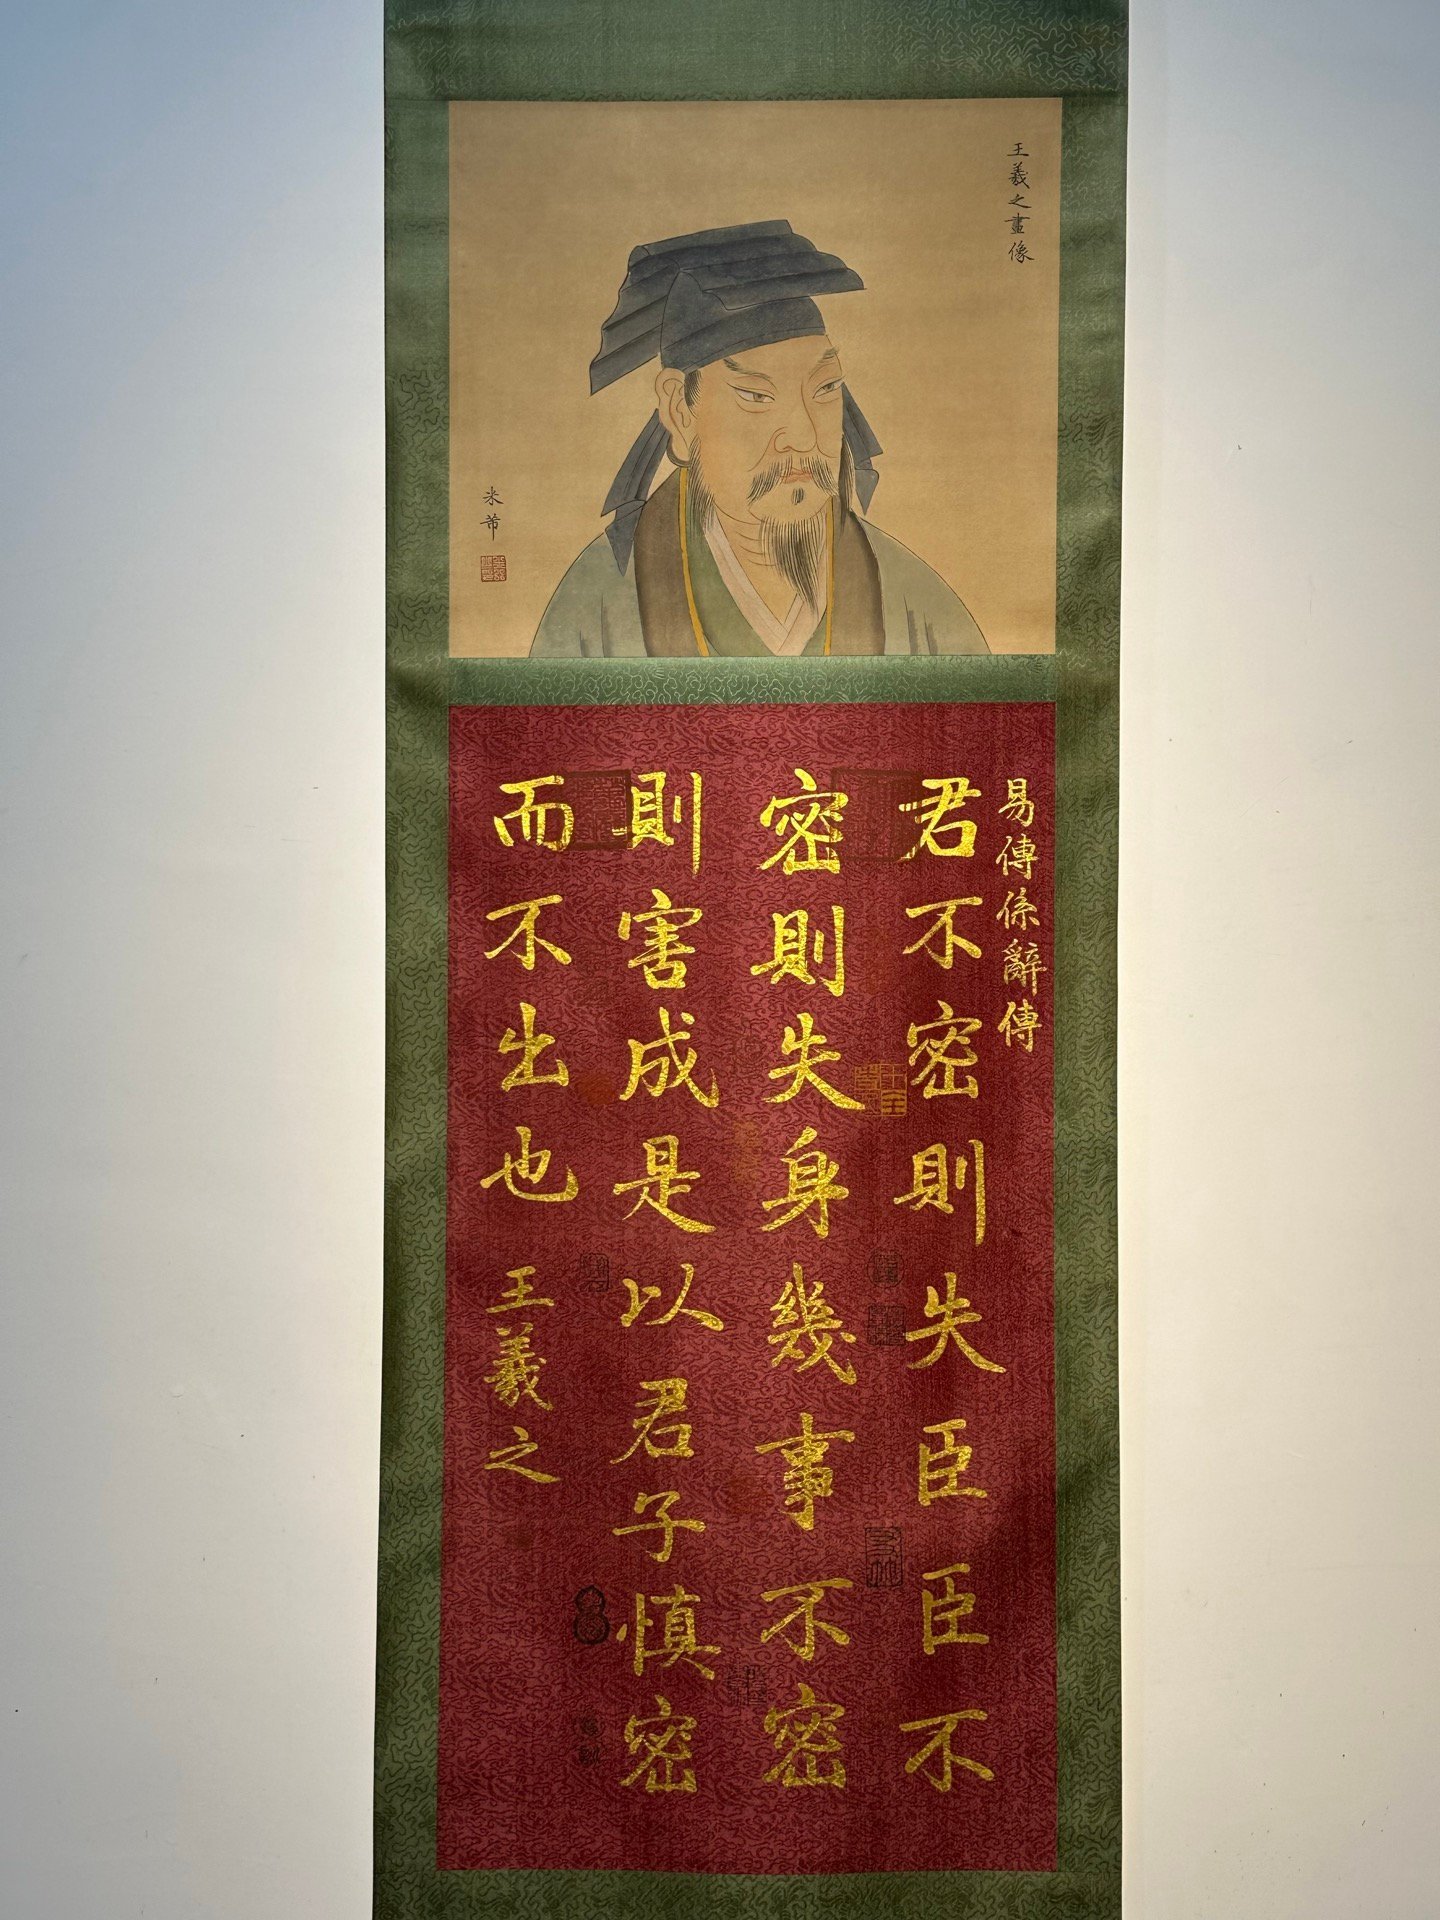 王羲之畫像
米芾
易傳係辭傳
君不密則失臣臣不
密則失身幾事不密
則害成是以君子慎密
而不出也
王羲之